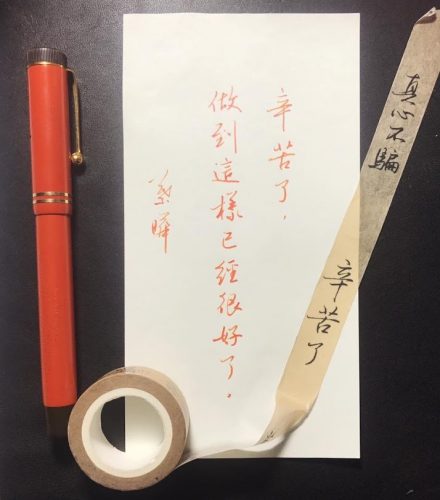 真心不騙
辛苦了
辛苦了，
做到這樣已經很好了。
葉曄